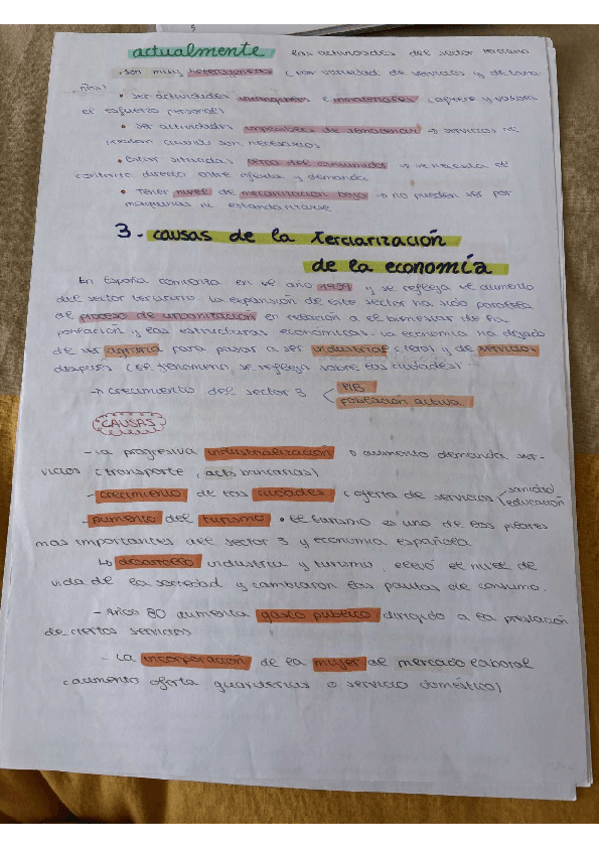 5
actualmente las actividades del sector terciario
• son muy heterogéneas (por variedad de servicios y de tama
ños)
• ser actividades intangibles e inmateriales (ofrece y valora
el esfuerzo personal)
• ser actividades imposibles de almacenar → servicios se
prestan cuando son necesarios
• Estar situadas cerca del consumidor → se necesita el
contacto directo entre oferta y demanda
• Tener nivel de mecanización bajo → no pueden ser por
maquinas ni estandarizarse
3- causas de la terciarización
de la economía
En España comienza en el año 1959 y se refleja el aumento
del sector terciario. La expansión de este sector ha sido paralela
al proceso de urbanización en relación a el bienestar de la
población y las estructuras económicas. La economía ha dejado
de ser agraria para pasar a ser industrial (1ero) y de servicios
después (el fenómeno se refleja sobre las ciudades)
→ crecimiento del sector 3
PIB
población activa
CAUSAS
- La progresiva industrialización o aumento demanda ser-
vicios (transporte, acts bancarias)
- crecimiento de las ciudades (oferta de servicios
sanidad
educación
- aumento del turismo • el turismo es uno de los pilares
mas importantes del sector 3 y economía española
↳ desarrollo industria y turismo, elevó el nivel de
vida de la sociedad y cambiaron las pautas de consumo.
- Años 80 aumenta gasto público dirigido a la prestación
de ciertos servicios
- La incorporación de la mujer al mercado laboral
(aumento oferta guarderías o servicio doméstico)